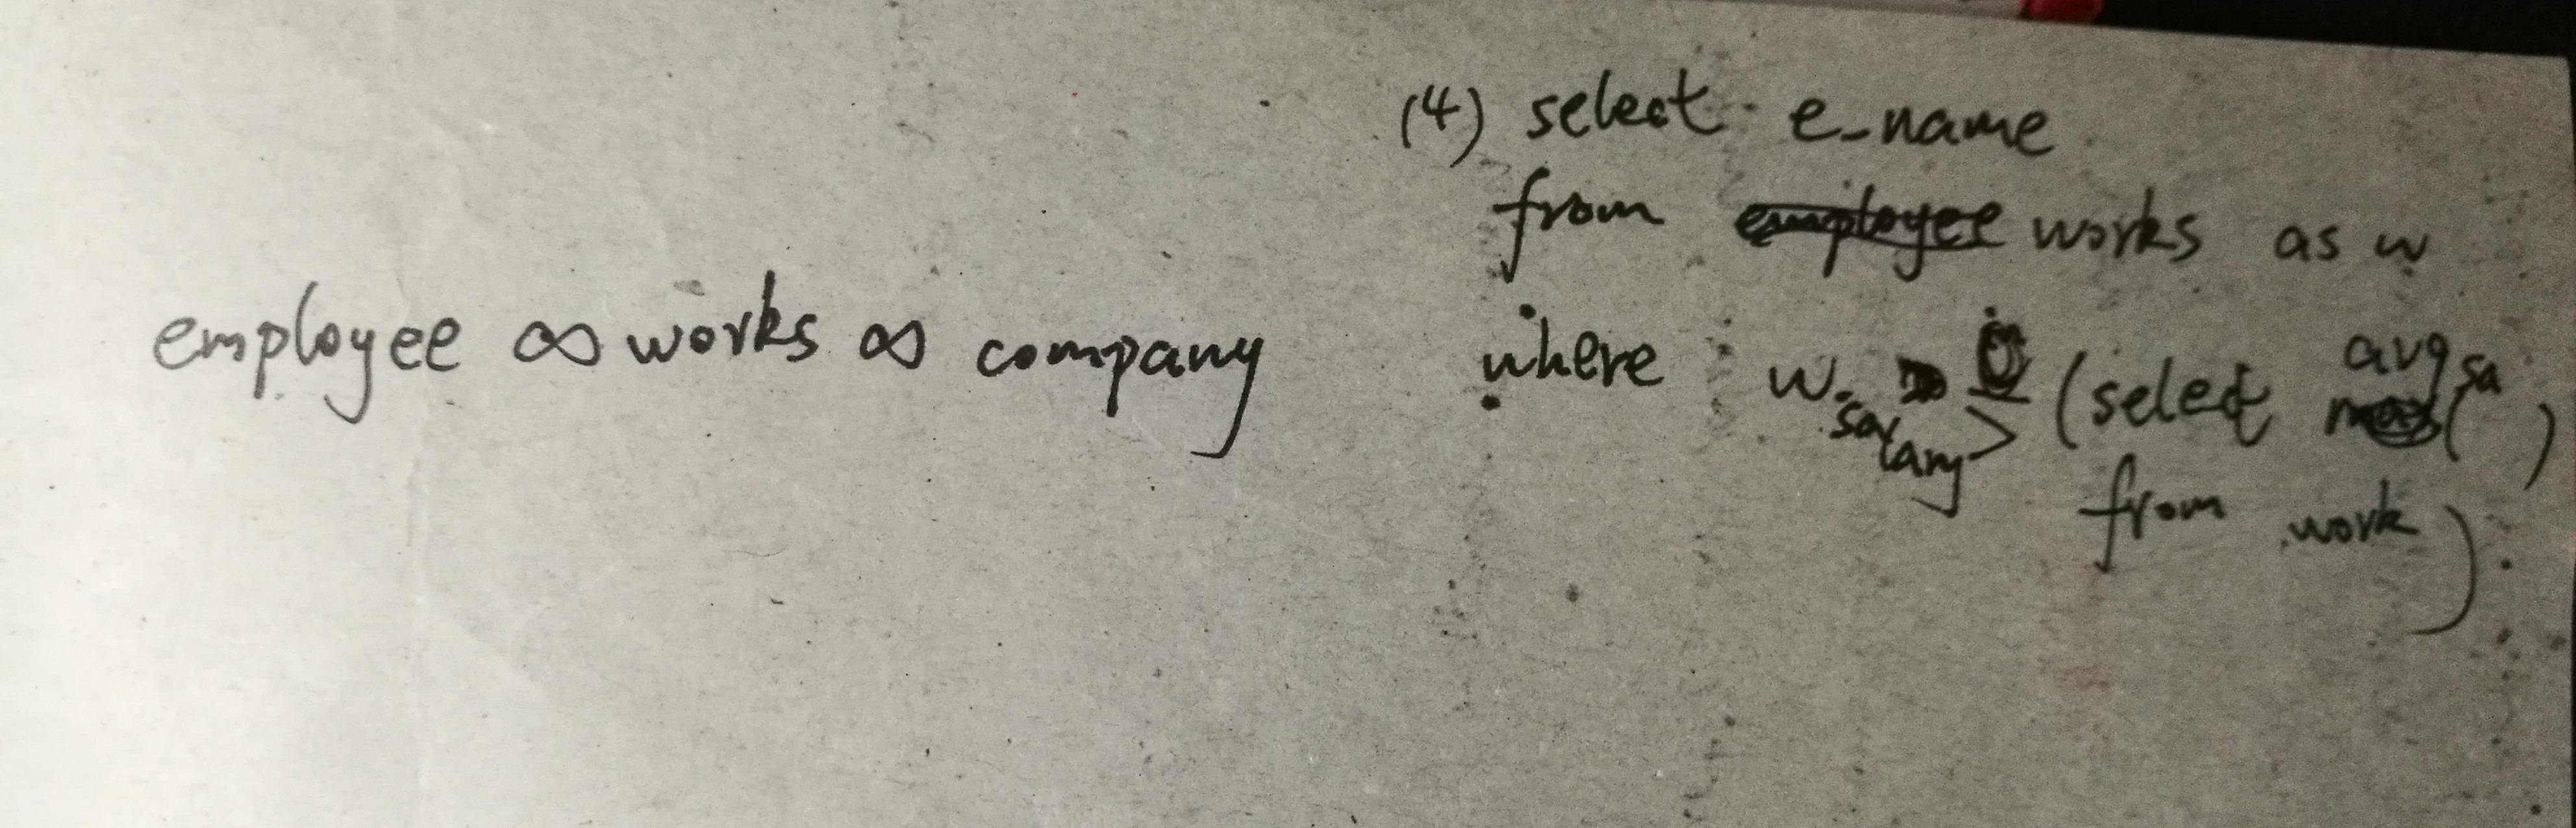 employee ∞ works ∞ company
(4) select e_name
from works as w
where w.salary > (select avg(sa )
from work)